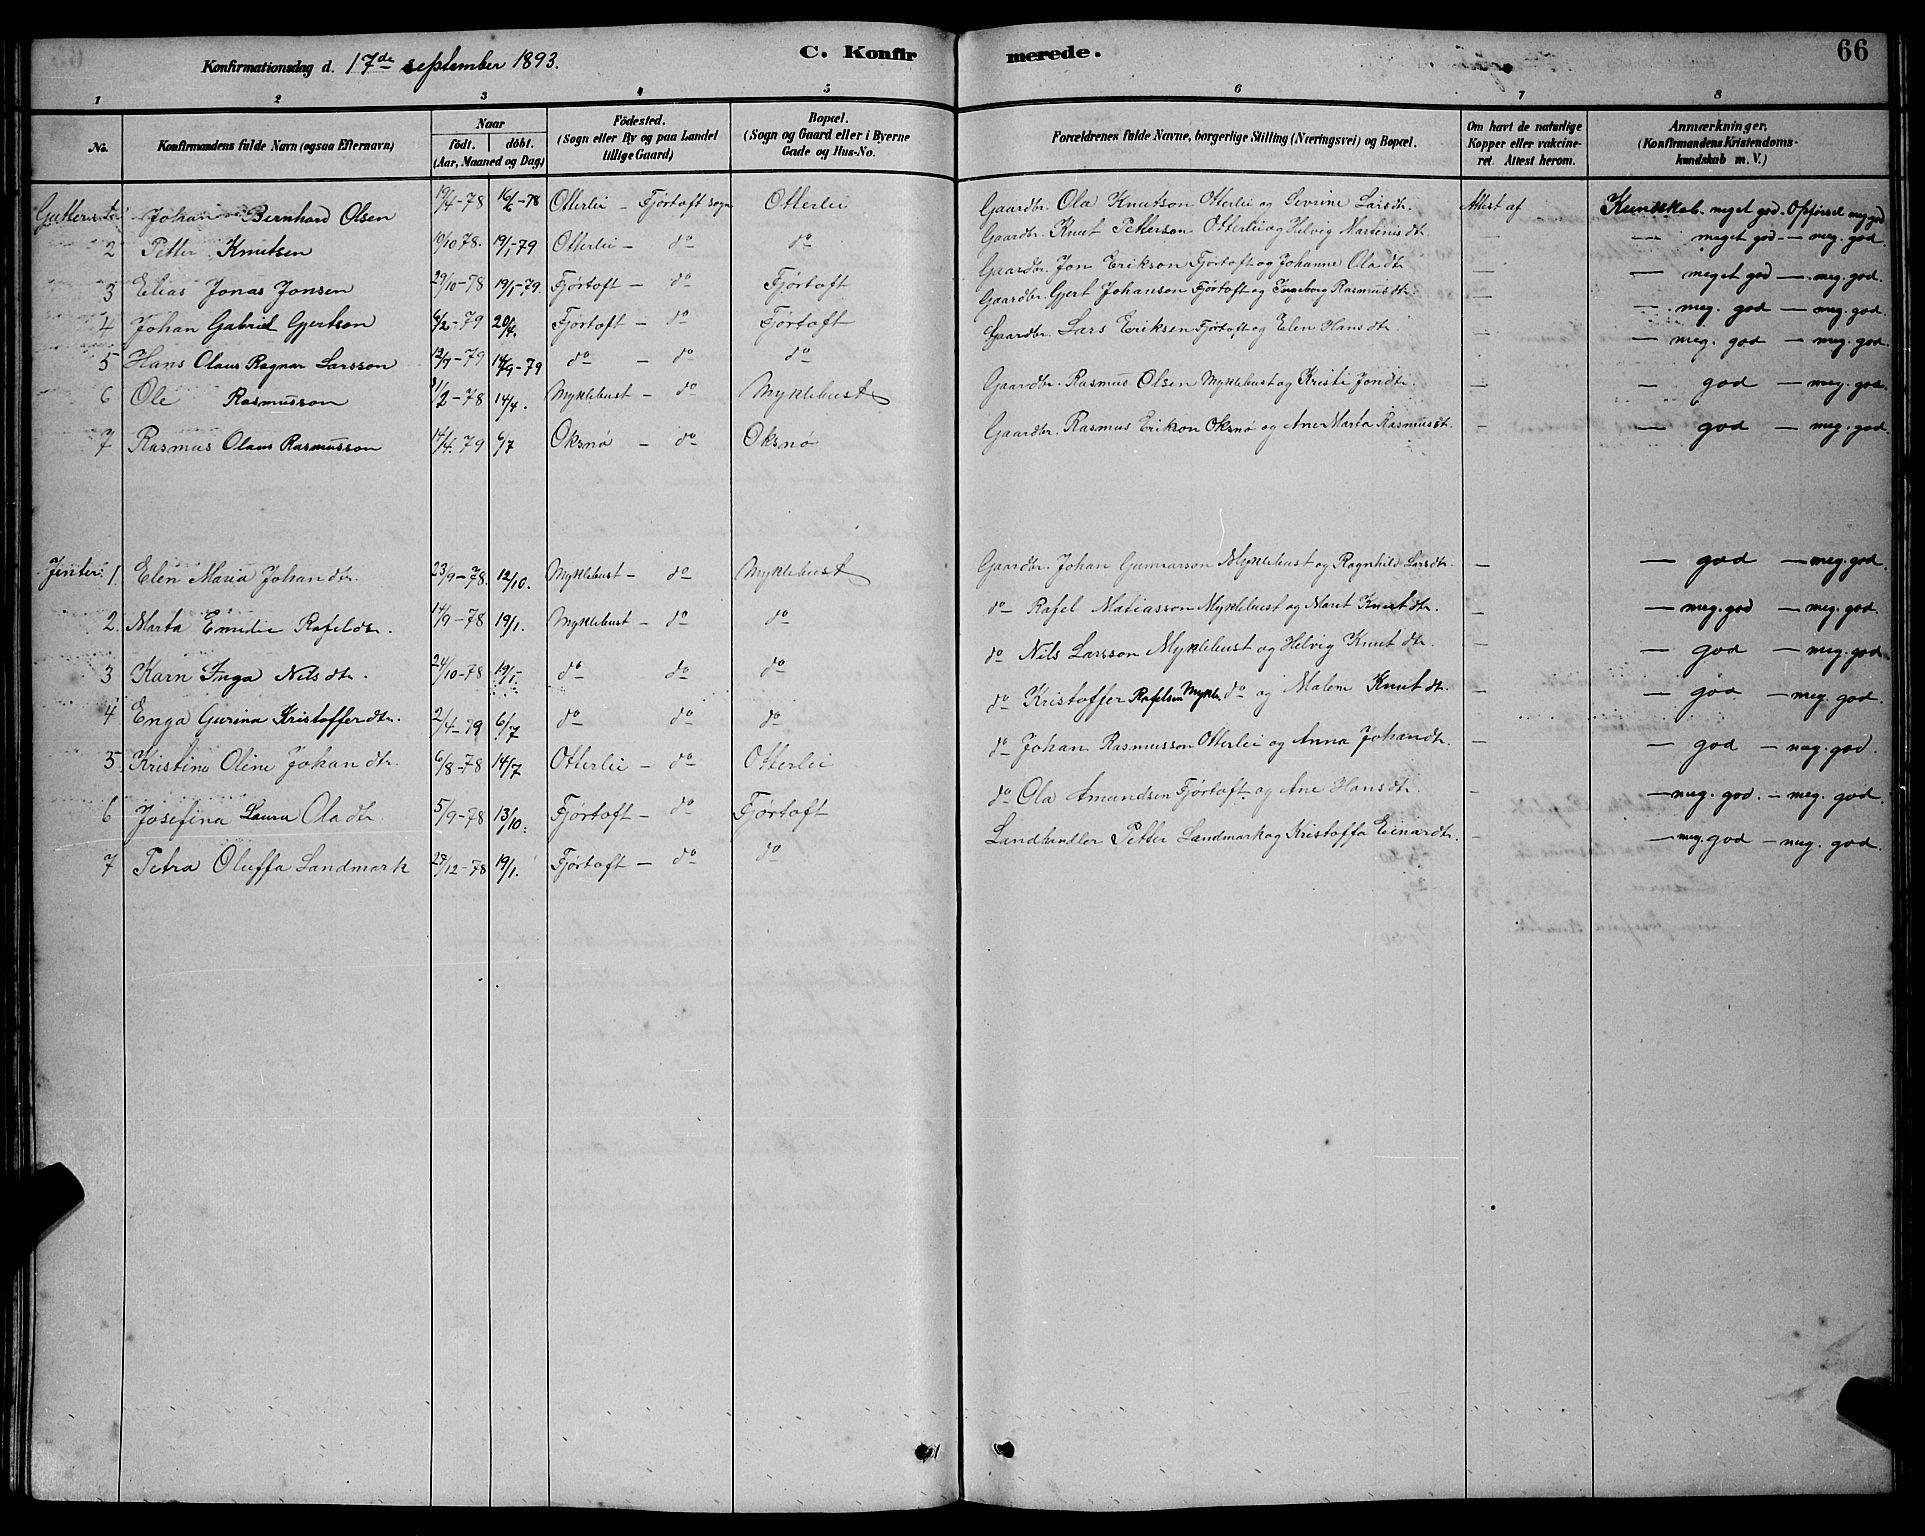 Konfirmationsdag d. 17de september 1893. C. Konfirmerede. 66
1 2 3 4 5 6 7 8
No. Konfirmandens fulde Navn (ogsaa Efternavn) Naar födt. döbt. (Aar, Maaned og Dag) Födested. (Sogn eller By og paa Landet tillige Gaard) Bopæl. (Sogn og Gaard eller i Byerne Gade og Hus-No. Forældrenes fulde Navne, borgerlige Stilling (Næringsvei) og Bopæl. Om havt de naturlige Kopper eller vakcineret. Attest herom. Anmærkninger. (Konfirmandens Kristendomskundskab m. V.)
Gutterne: 1 Johan Bernhard Olsen 19/4-78 16/6-78 Otterlei - Fjörtoft sogn Otterlei Gaardbr. Ola Knutson Otterlei og Sevrine Larsdtr. Attest af Kundskab. meget god. Opförsel meg. god
2 Petter Knutsen 10/10 78. 19/1-79 Otterlei - do do Gaardbr. Knut Petterson Otterlei og Helvig Martinisdtr. — — meget god — meg. god.
3 Elias Jonas Jonsen 29/10-78 19/1-79. Fjörtoft - do Fjörtoft Gaardbr. Jon Erikson Fjörtoft og Johanne Oladtr — — meget god — meg. god.
4 Johan Gabriel Gjertson 6/2-79 20/4. Fjörtoft - do Fjörtoft Gaardbr. Gjert Johanson Fjörtoft og Ingeborg Rasmusdtr. — — meg. god — meg. god.
5 Hans Olaus Ragnar Larsson 12/7-79 14/9-79 do - do do Gaardbr. Lars Eriksen Fjörtoft og Elen Hansdtr — — meg. god — meg. god.
6 Ole Rasmusson 21/2-78 14/4. Myklebust - do Myklebust Gaardbr. Rasmus Olsen Myklebust og Kristi Jondtr. — — god — meg. god.
7 Rasmus Olaus Rasmusson 14/4. 79 6/7 Oksnö - do Oksnö Gaardbr. Rasmus Erikson Oksnö og Ane Marta Rasmusdt. — — god — meg. god.
Jenter: 1. Elen Maria Johandtr. 23/9-78. 12/10. Myklebust - do Myklebust Gaardbr. Johan Gunnarson Myklebust og Ragnhild Larsdtr. — — god — meg. god.
2. Marta Emidie Rafeldtr. 14/9-78 19/1. Myklebust - do do do Rafel Matiasson Myklebust og Maret Knutdtr. — — meg. god — meg. god.
3 Karn Inga Nilsdtr. 24/10-78 19/1- do do do do Nils Larsson Myklebust og Helvig Knutdtr. — — god — meg. god
4 Enga Gurina Kristofferdtr. 2/4-79 6/7 do do do do Kristoffer Rafelsen Mykle. do og Malem Knutdtr. — — god — meg. god.
5. Kristine Oline Johandtr. 6/8-78 14/7 Otterlei - do Otterlei do Johan Rasmusson Otterlei og Anna Johandtr. — — god — meg. god.
6 Josefina Laura Oladtr. 5/9-78 13/10. Fjörtoft - do Fjörtoft do Ola Amundsen Fjörtoft. og Ane Hansdtr. — — meg. god. — meg. god.
7 Petra Oluffa Landmark 27/12-78 19/1. Fjörtoft - do do Landhandler Petter Landmark og Kristoffa Einardtr. — — meg. god — meg. god.